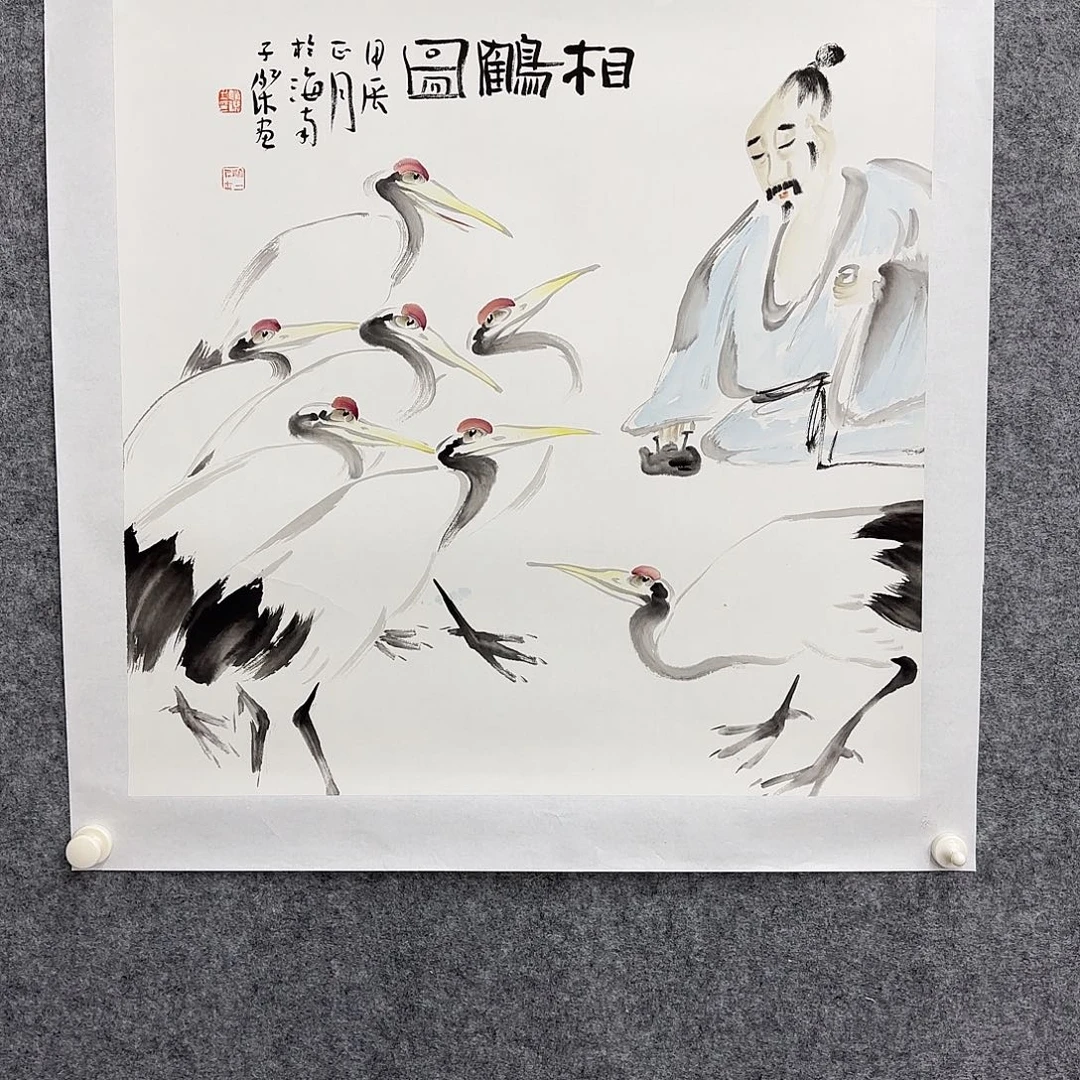 相鶴圖
甲辰
正月
於海南
子傑画